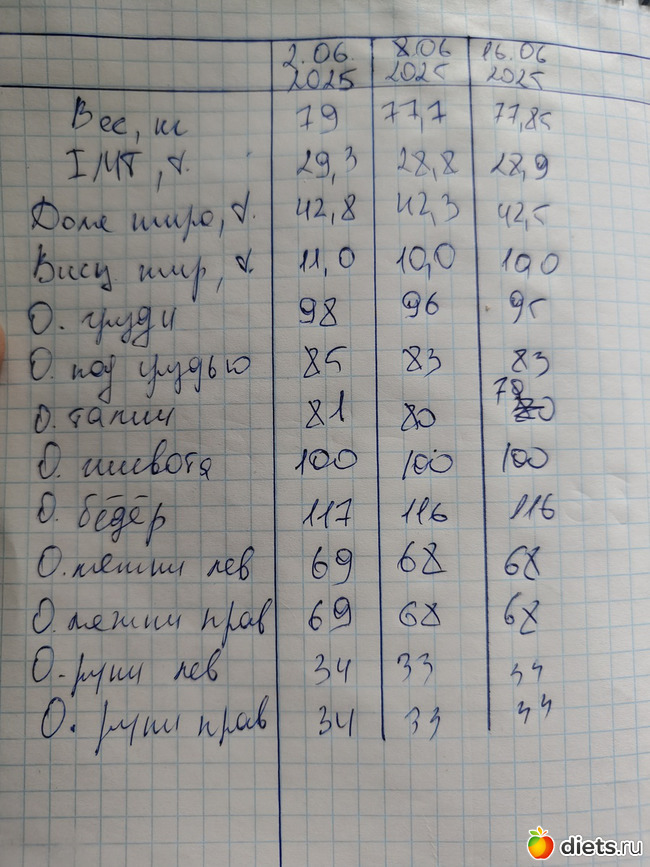 2.06. 8.06 16.06
2025 2025 2025
Вес, кг 79 77,7 77,85
ІМТ, %. 29,3 28,8 28,9
Доля жира, %. 42,8 42,3 42,5
Висц жир, %. 11,0 10,0 10,0
О. груди 98 96 95
О. под грудью 85 83 83
О. талии 81 80 78
О. живота 100 100 100
О. бёдер 117 116 116
О. ляжки лев 69 68 68
О. ляжки прав 69 68 68
О. руки лев 34 33
О. руки прав 34 33
diets.ru